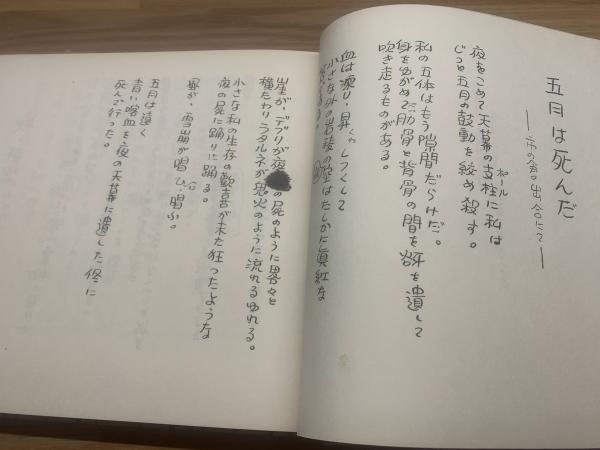 五月は死んだ
夜をこめて天幕の支柱に私は
ポール
じっと五月の鼓動を絞め殺す。
私の五体はもう隙間だらけだ。
身をゆがめて肋骨と背骨の間を谺を遺して
吹き走るものがある。
血は凍り、昇くわしつくして
小さな外の岩稜の陰はたしかに真紅な
崖が、デブリが夜の屍のように累々と
横たわりラタルネが鬼火のように流れるゆれる。
小さな私の生存の歓喜が未だ狂ったような
夜の屍に踊りに踊る。
風が、雪崩が唱ひに唱ふ。
五月は遠く
青い喀血を夜の天幕に遺した侭に
死んで行った。